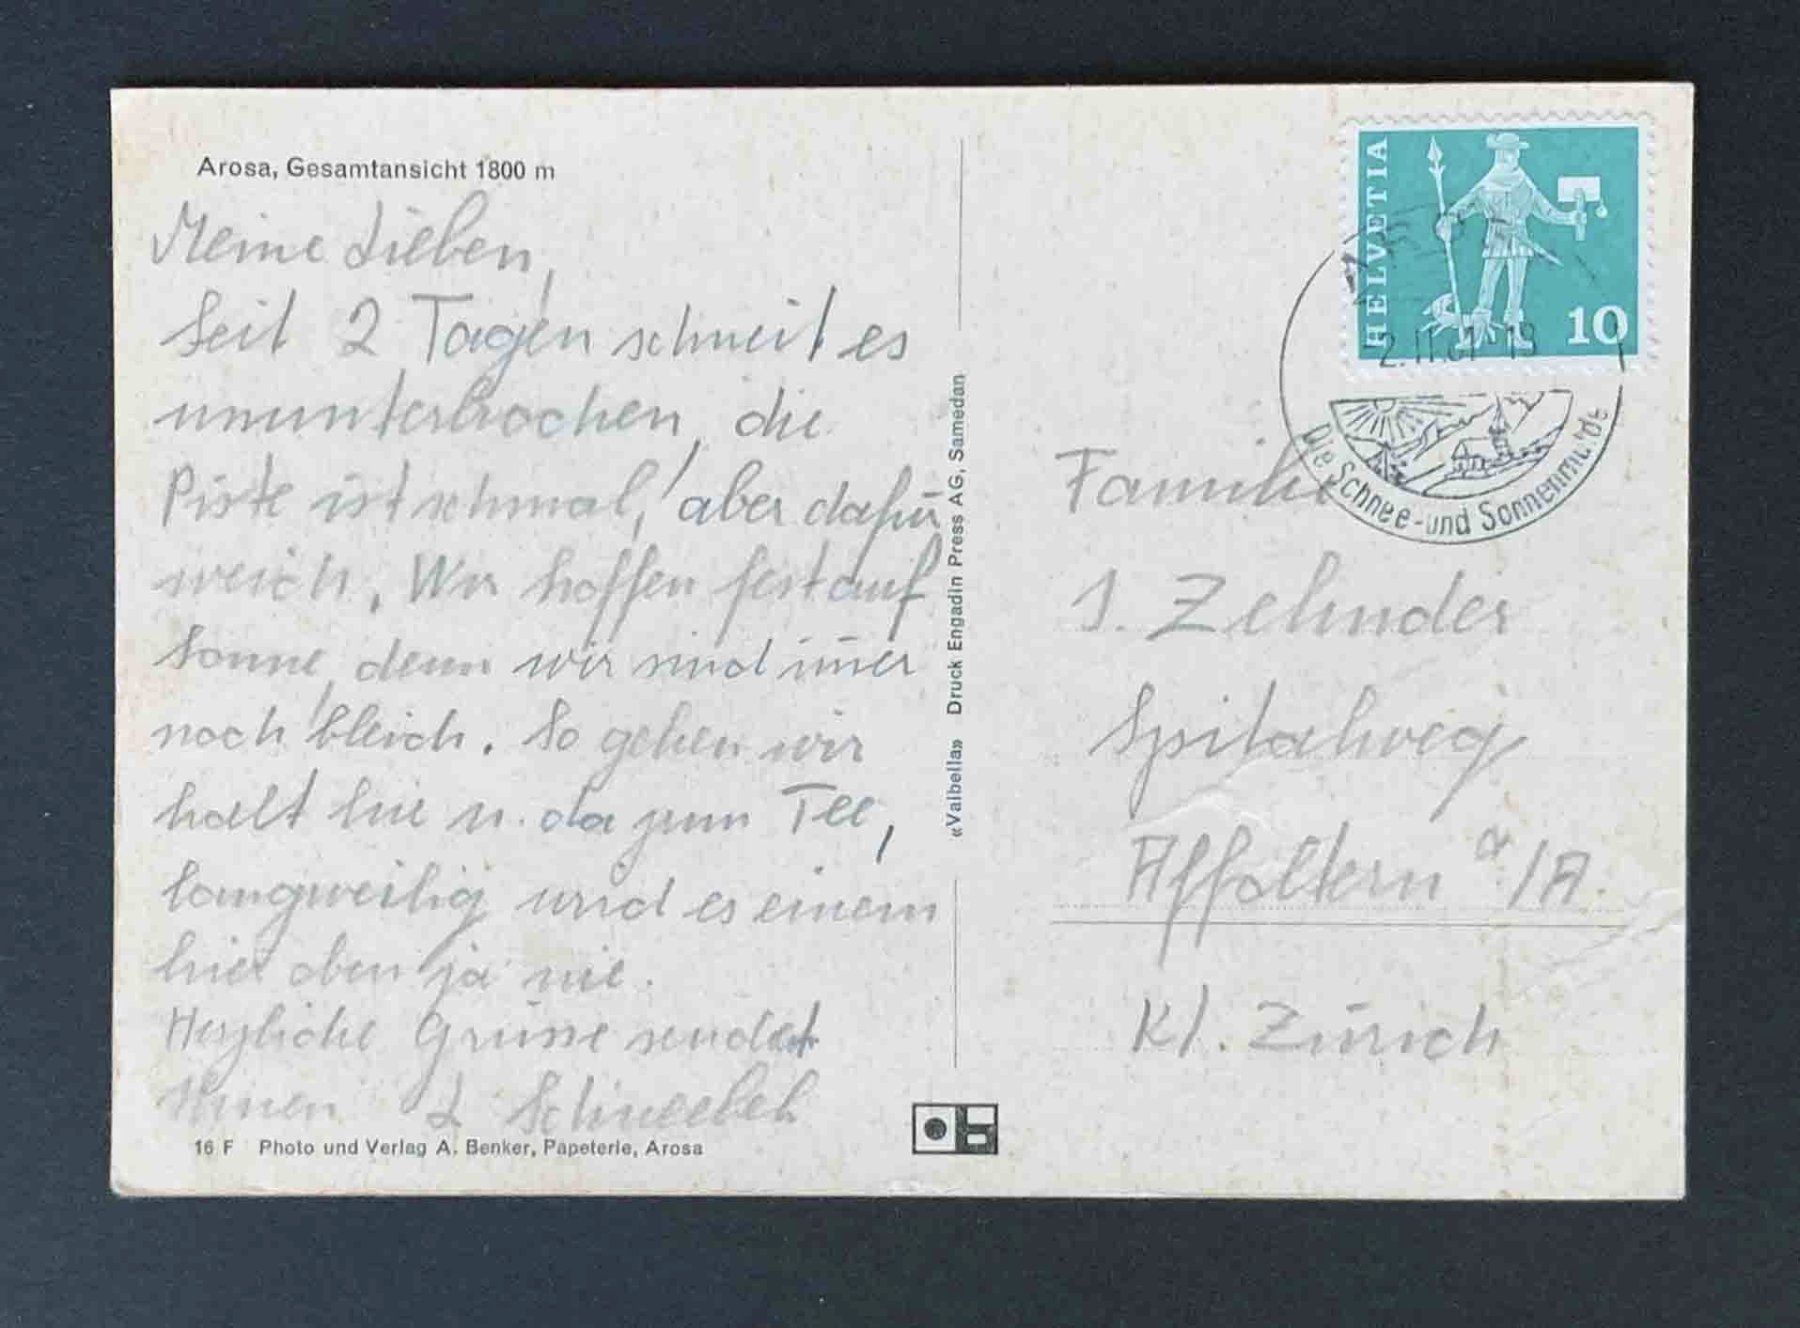 Arosa, Gesamtansicht 1800 m
Meine Lieben,
Seit 2 Tagen schneit es
ununterbrochen, die
Piste ist schmal, aber dafür
weich. Wir hoffen fest auf
Sonne, denn wir sind im̄er
noch bleich. So gehen wir
halt hie u. da zum Tee,
langweilig wird es einem
hier oben ja nie.
Herzliche Grüsse sendet
Ihnen L Schneebeli
16 F Photo und Verlag A. Benker, Papeterie, Arosa
«Valbella» Druck Engadin Press AG, Samedan
HELVETIA
10
2.11.67-19
Die Schnee- und Sonnenmulde
Familie
J. Zehnder
Spitalweg
Affoltern a/A.
Kt. Zürich